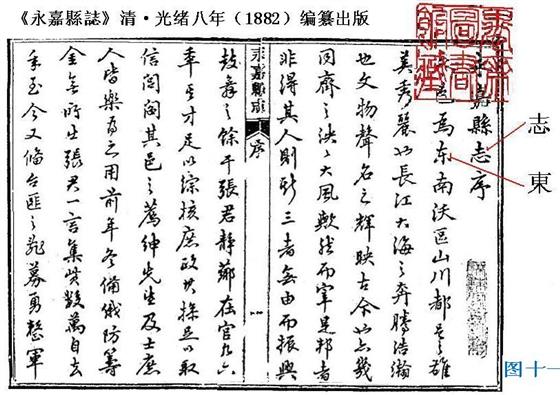 《永嘉縣誌》清·光绪八年（1882）编纂出版
永嘉縣志序
东南沃區山川都邑之雄
美秀麗如長江大海之奔騰浩瀚
也文物聲名之輝映古今
齊之泱泱大風歟然而宰是邦者
非得其人則斯三者無由而振興
永嘉縣志 序
鼓舞之餘干張君靜薌在官
年其才足以綜核庶政其操足以取
信閭閻其邑之薦紳先生及士庶
人皆樂為之用前年冬備俄防籌
金無所出張君一言集貲數萬自去
年至今又偹台匪之亂募勇整軍
志
東
图十一